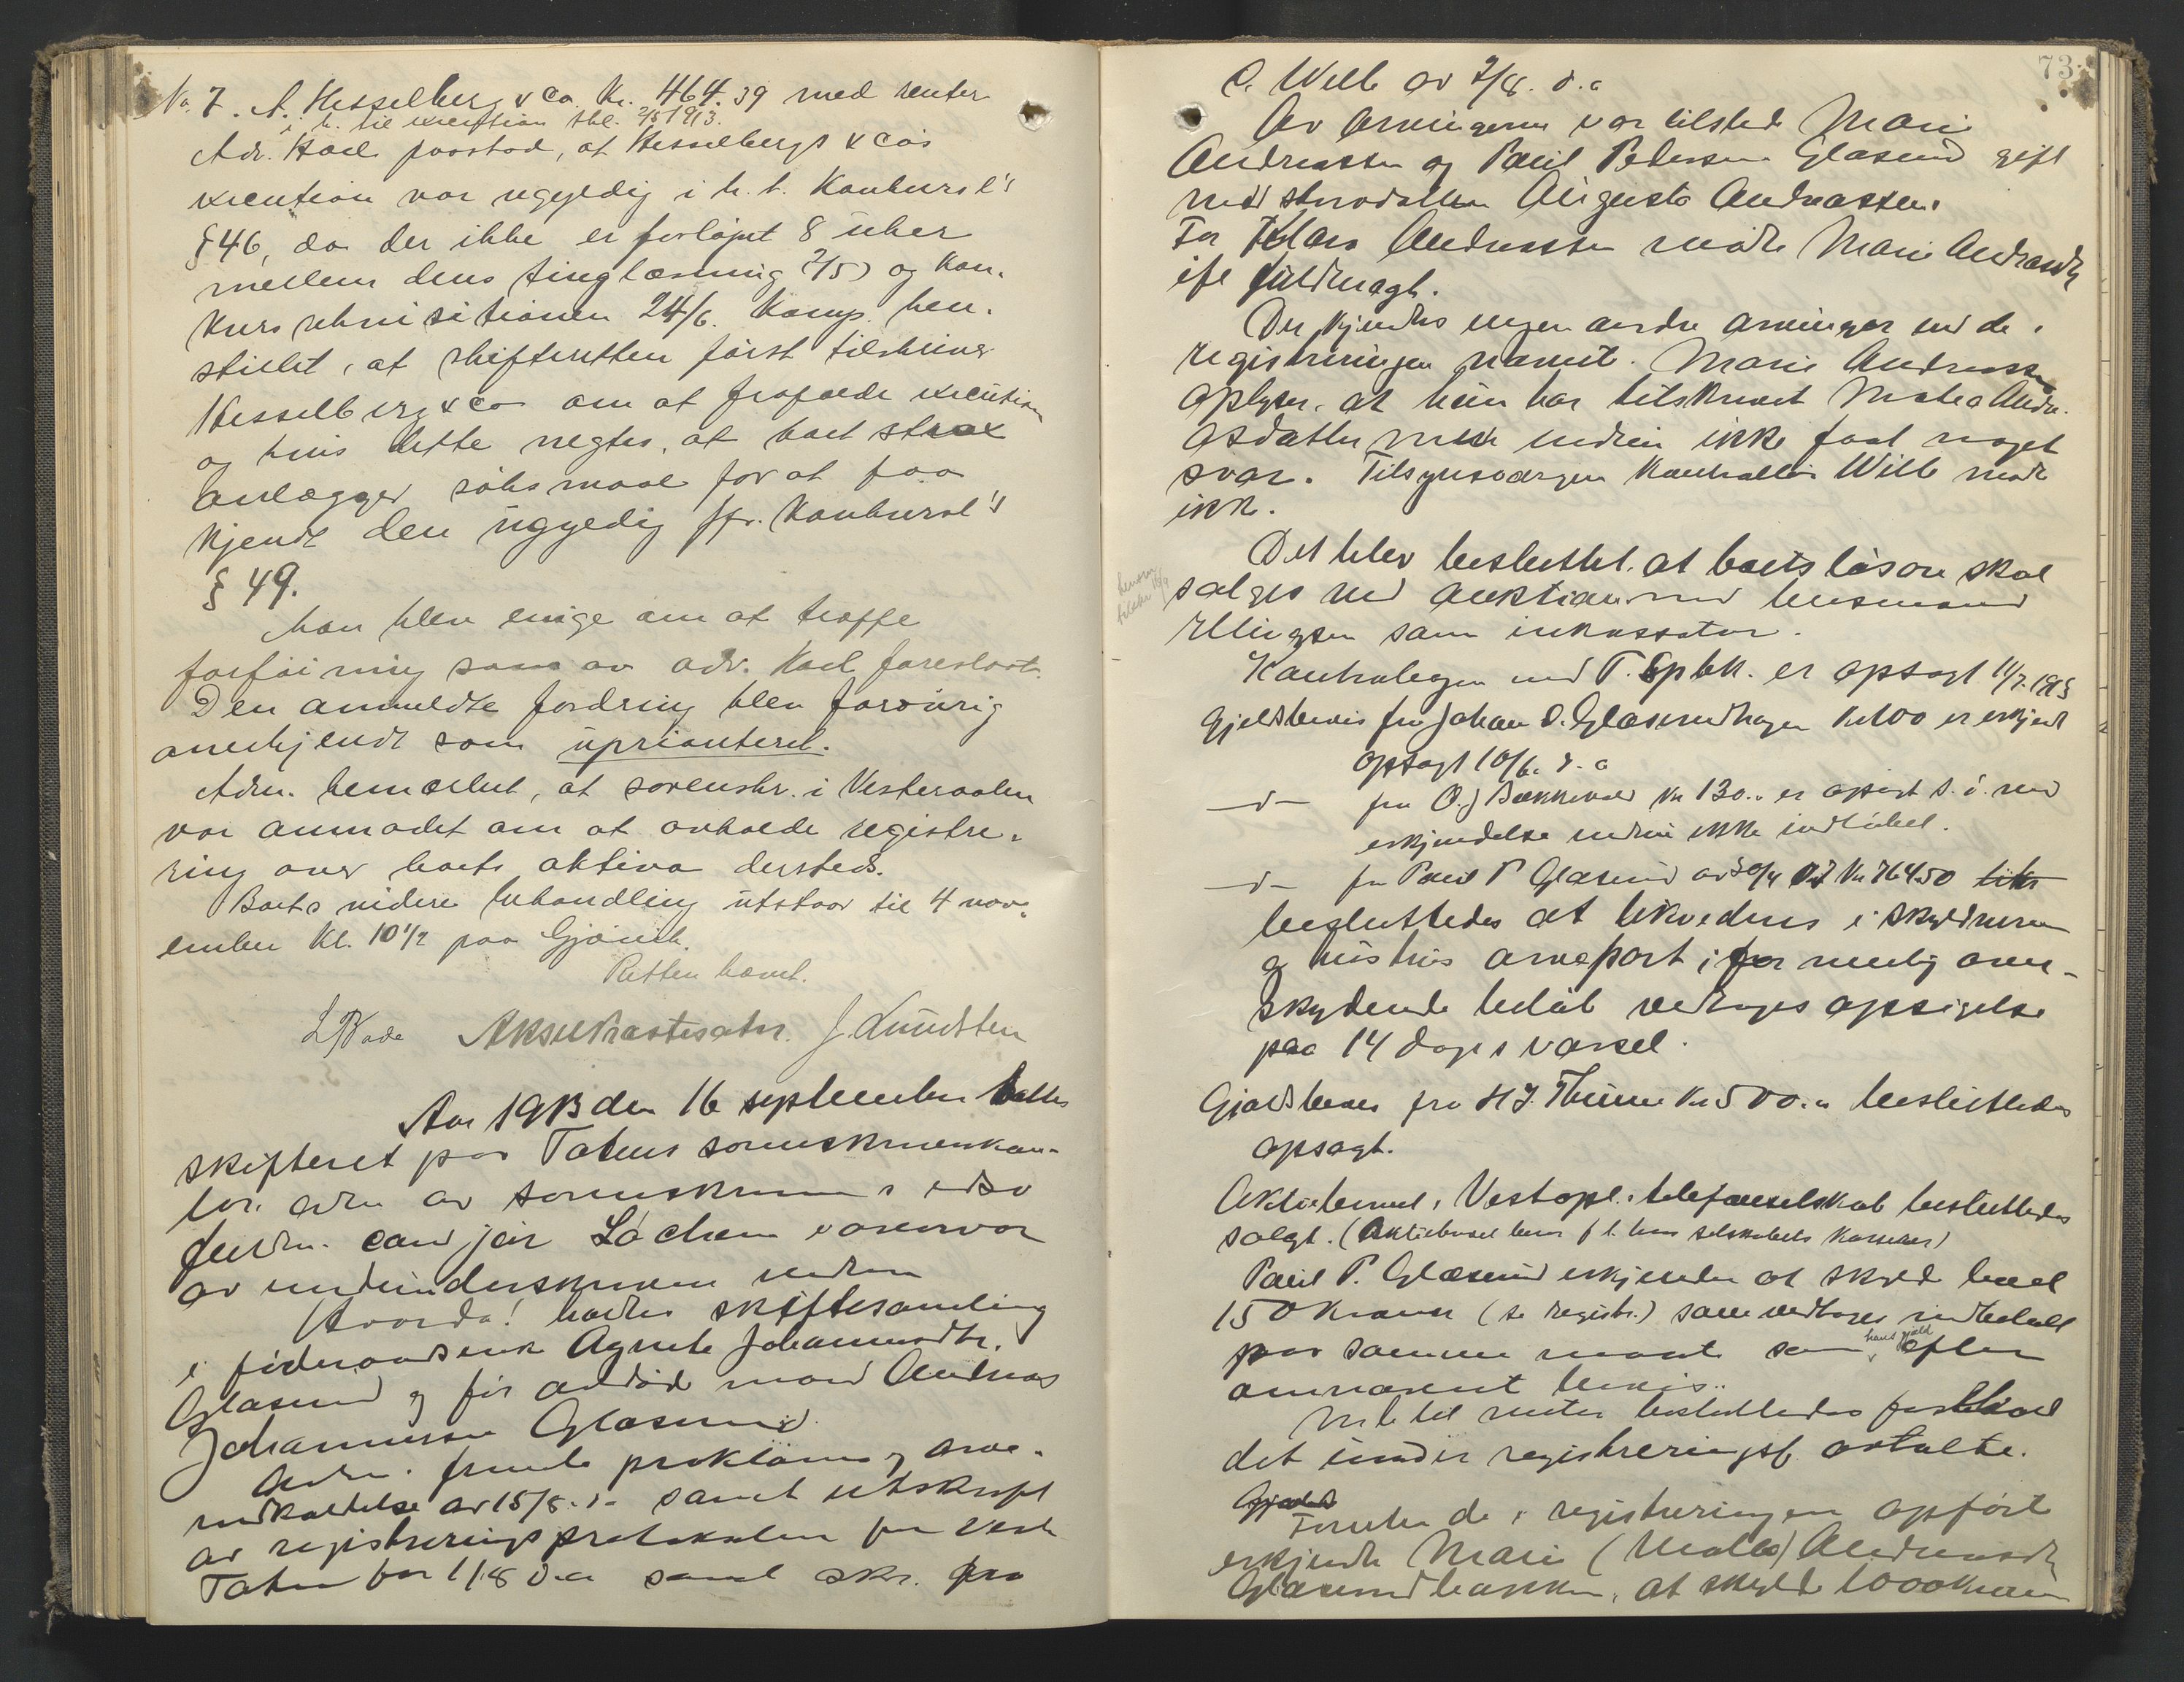 No. 7. A. Hesselberg & Co. Kr. 464.39 med renter
i h. til execution thl. 2/5 1913.
Adv. Hoel paastod, at Hesselbergs & Co's
execution var ugyldig i h. t. Konkursl's
§ 46, da der ikke er forløpet 8 uker
mellem dens tinglæsning 2/5) og kon-
kursrekvisitionen 24/6. Komp. hen-
stillet, at skifteretten først tilskriver
Hesselberg & Co om at frafalde execution
og hvis dette negtes, at boet strax
anlægger søksmaal for at faa
kjendt den ugyldig jfr. Konkursl's
§ 49.
Man blev enige om at træffe
forføining som av adv. Hoel foreslaat.
Den anmeldte fordring blev forøvrig
anerkjendt som uprioritert.
Adm. bemærket, at sorenskr. i Vesteraalen
var anmodet om at avholde registre-
ring over boets aktiva dersteds.
Boets videre behandling utstaar til 4 nov-
ember kl. 10 1/2 paa Gjøvik.
Retten hævet.
J. Lundsten
Aar 1913 den 16 september holdtes
skifteret paa Totens sorenskriverkon-
tor. adm av sorenskriverens edsv
fuldm. cand jur Lochen overvar
av undertegnede vidner
Hvorda! holdtes skiftesamling
i føderaadsenke Agnete Johannesdtr.
Glæserud og før avdød mand Andreas
Johannesen Glæserud.
Adm. fremla proklama og arve-
indkaldelse av 15/8. d.a samt utskrift
av registreringsprotokollen for Vestre
Toten for 1/8 d.a samt skr. fra
73
O. Welb av 2/8. d.a
Av arvingerne var tilstede Marie
Andreassen og Paul Pedersen Glæserud gift
med stervdatteren Augusta Andreassen.
For Klara Andreassen møtte Marie Andreasdtr
ifl fuldmagt.
Der kjendtes ingen andre arvinger end de i
registreringen nævnt. Marie Andreassen
oplyser, at hun har tilskrevet Mathea Andre-
asdatter men endnu ikke faat noget
svar. Tilsynsværgen Kontrollør Welb møtte
ikke.
Det blev besluttet, at boets løsøre skal
sælges ved auktion med lensmand
Ellingsen som inkassator.
Kontrabogen med T. Spbk. er opsagt 11/7. 1913
Gjeldsbevis fra Johan O. Glæserudhagen Kr 100 er erkjendt
opsagt 10/6. d.a
—d— fra O. J Bækkevold kr 130.. er opsagt s. d. med
erkjendelse endnu ikke indløbet.
—d— fra Paul P Glæserud av 30/4 07 Kr 764.50
besluttedes at likvideres i skyldneren
og hustrus arvepart; for mulig over-
skydende beløb vedtoges opsigelse
paa 14 dages varsel.
Gjældsbevis fra H J. Thune kr 500.. besluttedes
opsagt.
Aktiebrevet i Vestopl. telefonselskab besluttedes
solgt. (Aktiebrevet beror f t. hos selskabets kasserer)
Paul P. Glæserud erkjender at skylde boet
150 kroner (se registr.) som vedtoges indbetalt
paa samme maate som hans gjæld efter
omnævnt bevis..
M. h. til renter besluttedes forholdt
det under registreringsf. avtalte.
Gjælds
Foruten de i registreringen opført
erkjendte Marie (Malla) Andreasdtr
Glæserudbakken, at skylde 1000 kroner